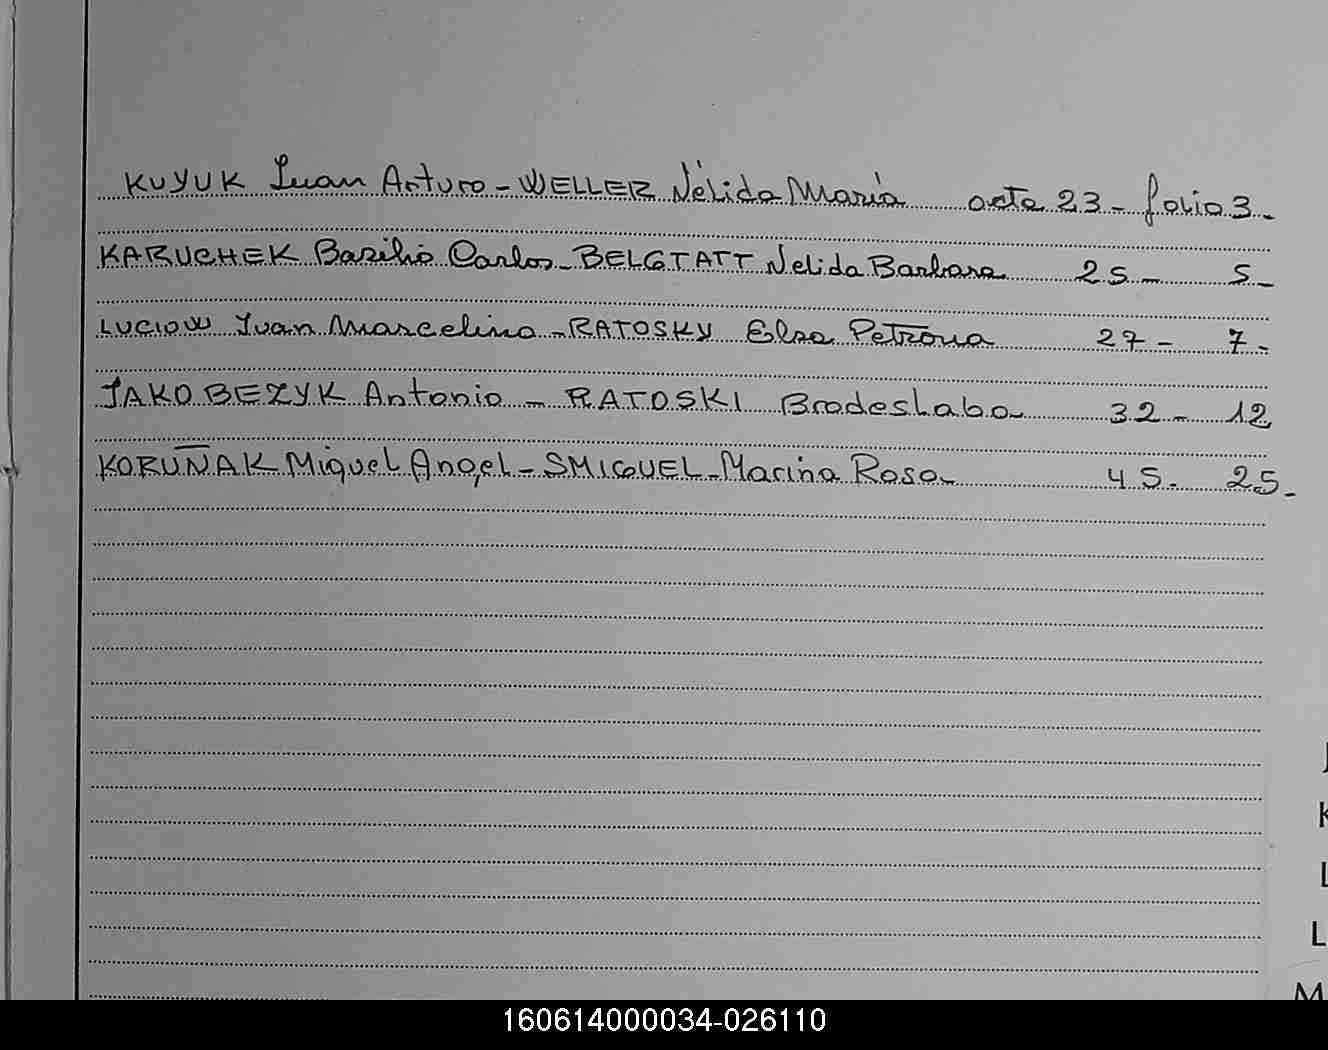 KUYUK Juan Arturo - WELLER Nélida María acta 23 - folio 3 -
KARUCHEK Basilio Carlos - BELGTATT Nelida Barbara 25 - 5 -
LUCIOW Juan Marcelino - RATOSKY Elsa Petrona 27 - 7 -
JAKOBEZYK Antonio - RATOSKI Brodeslaba 32 - 12
KORUÑAK Miguel Angel - SMIGUEL - Marina Rosa - 45 - 25 -
J
K
L
L
M
160614000034-026110